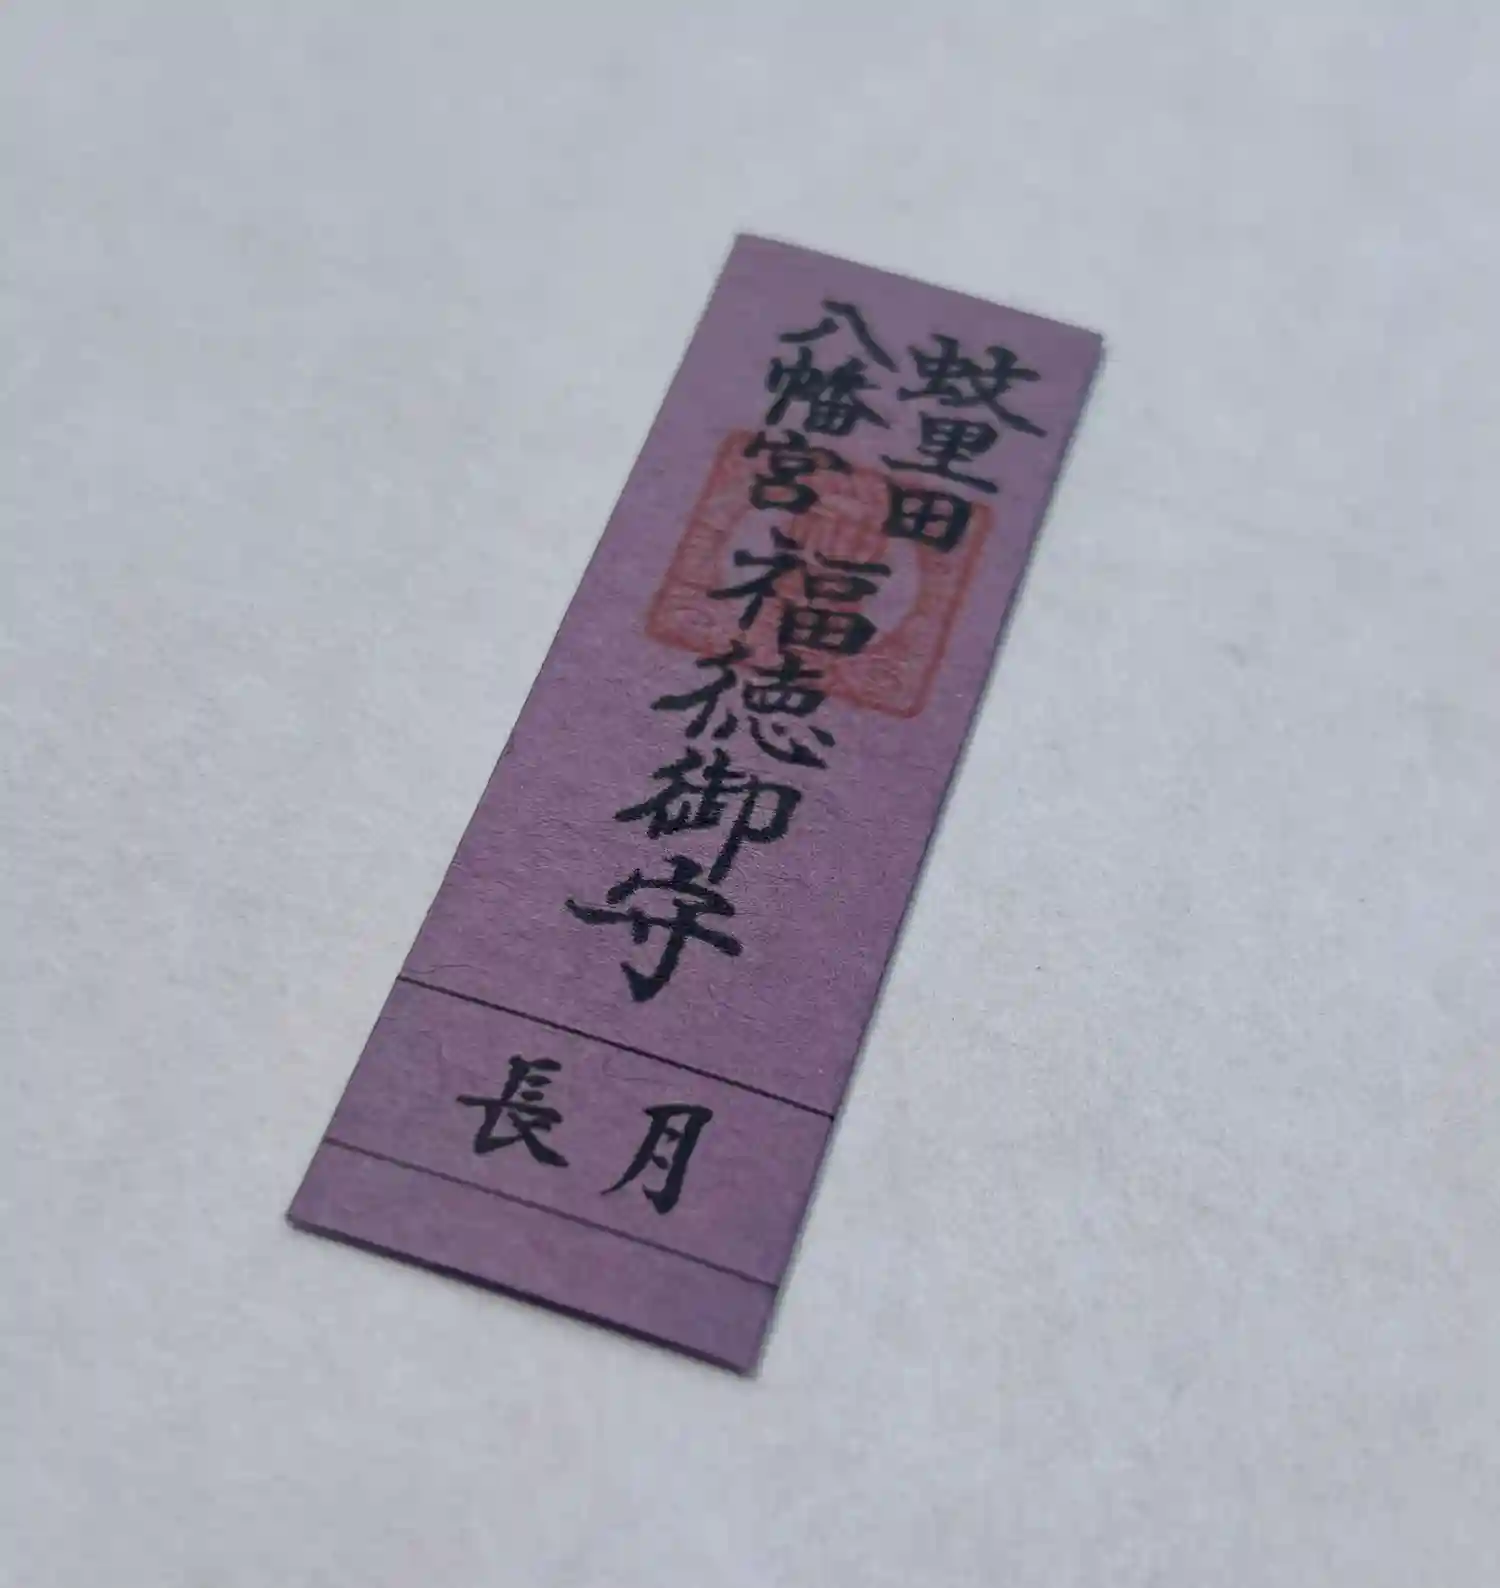 蚊里田
八幡宮
福徳御守
月
長